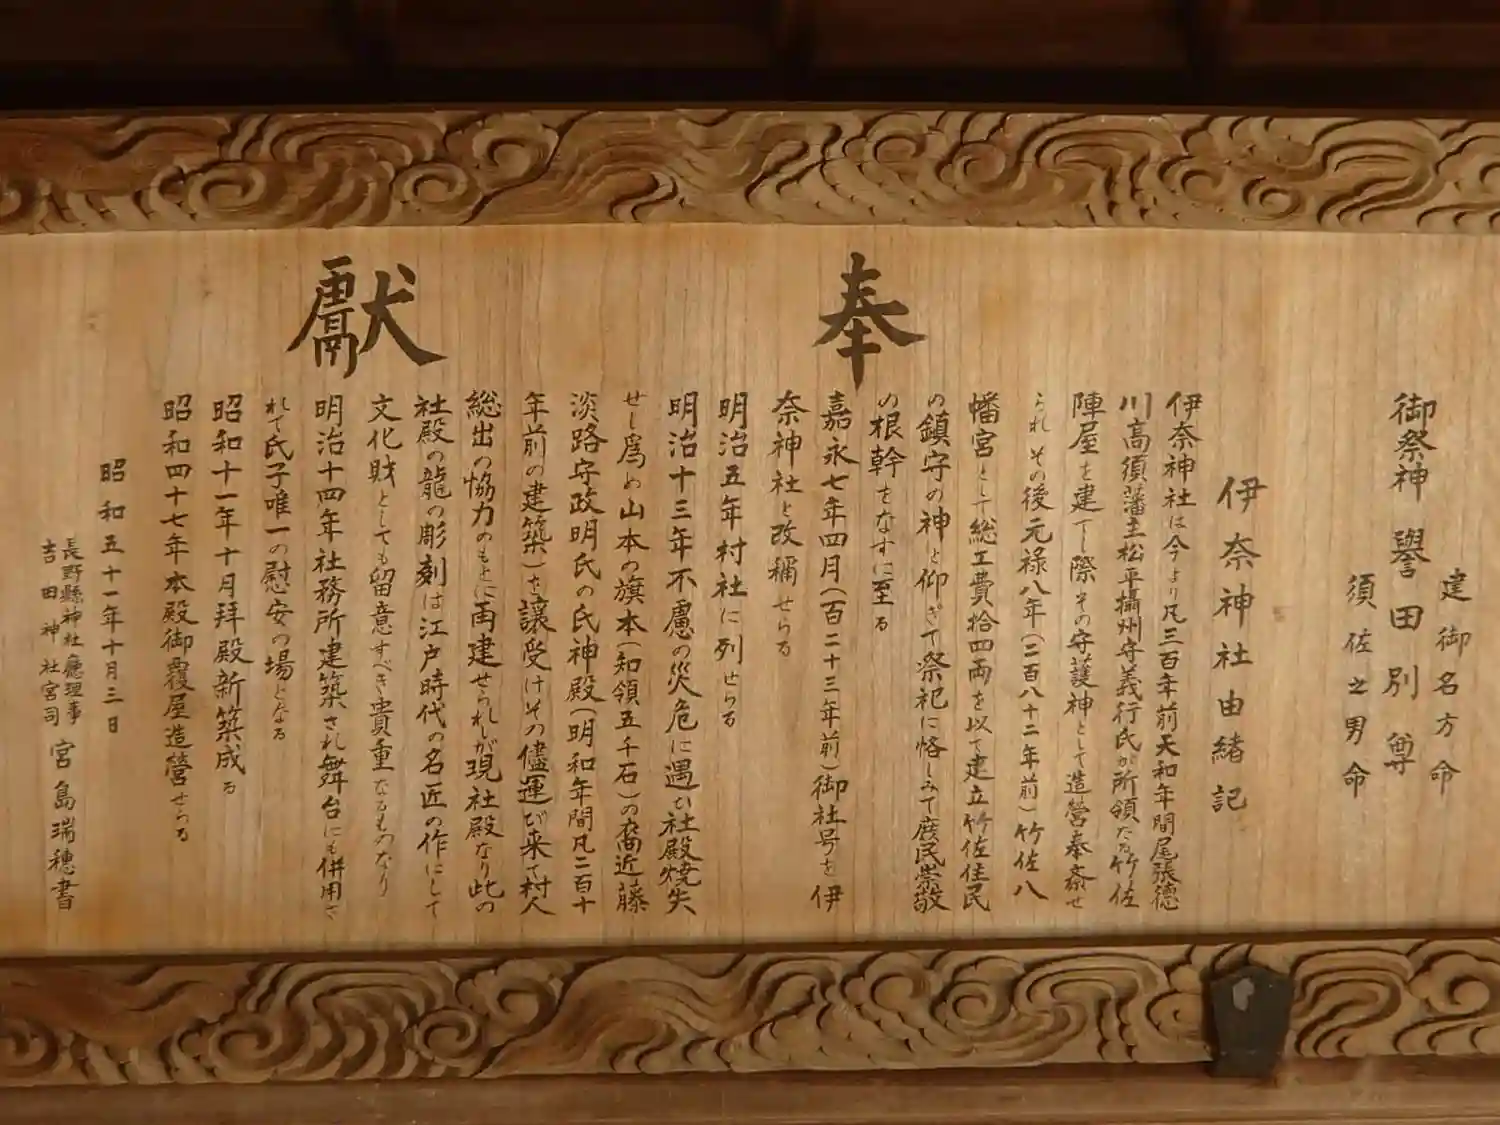 奉獻
建御名方命
御祭神 譽田別尊
須佐之男命
伊奈神社由緒記
伊奈神社は今より凡三百年前天和年間尾張德
川高須藩主松平攝州守義行氏が所領たる竹佐
陣屋を建てし際その守護神として造營奉斎せ
られその後元禄八年(二百八十二年前)竹佐八
幡宮として総工費拾四両を以て建立竹佐住民
の鎮守の神と仰ぎて祭祀に恪しみて庶民崇敬
の根幹をなすに至る
嘉永七年四月(百二十三年前)御社号を伊
奈神社と改稱せらる
明治五年村社に列せらる
明治十三年不慮の災危に遇ひ社殿焼失
せし爲め山本の旗本(知領五千石)の裔近藤
淡路守政明氏の氏神殿(明和年間凡二百十
年前の建築)を讓受けその儘運び来て村人
総出の協力のもとに再建せられしが現社殿なり此の
社殿の龍の彫刻は江戸時代の名匠の作にして
文化財としても留意すべき貴重なるものなり
明治十四年社務所建築され舞台にも併用さ
れて氏子唯一の慰安の場となる
昭和十一年十月拝殿新築成る
昭和四十七年本殿御覆屋造營せらる
昭和五十一年十月三日
長野縣神社廳理事
吉田神社宮司 宮島瑞穂書